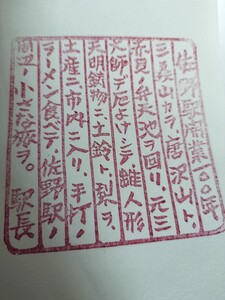 佐野駅開業一〇〇年
三毳山カラ唐沢山ト、
赤見ノ弁天池ヲ回リ、元三
大師デ厄よけシテ、雛人形
天明鋳物ニ土鈴ト、梨ヲ、
土産ニ市内ニ入リ、手打ノ
ラーメン食べテ、佐野駅ノ
周辺ノ小さな旅ヲ。 駅長